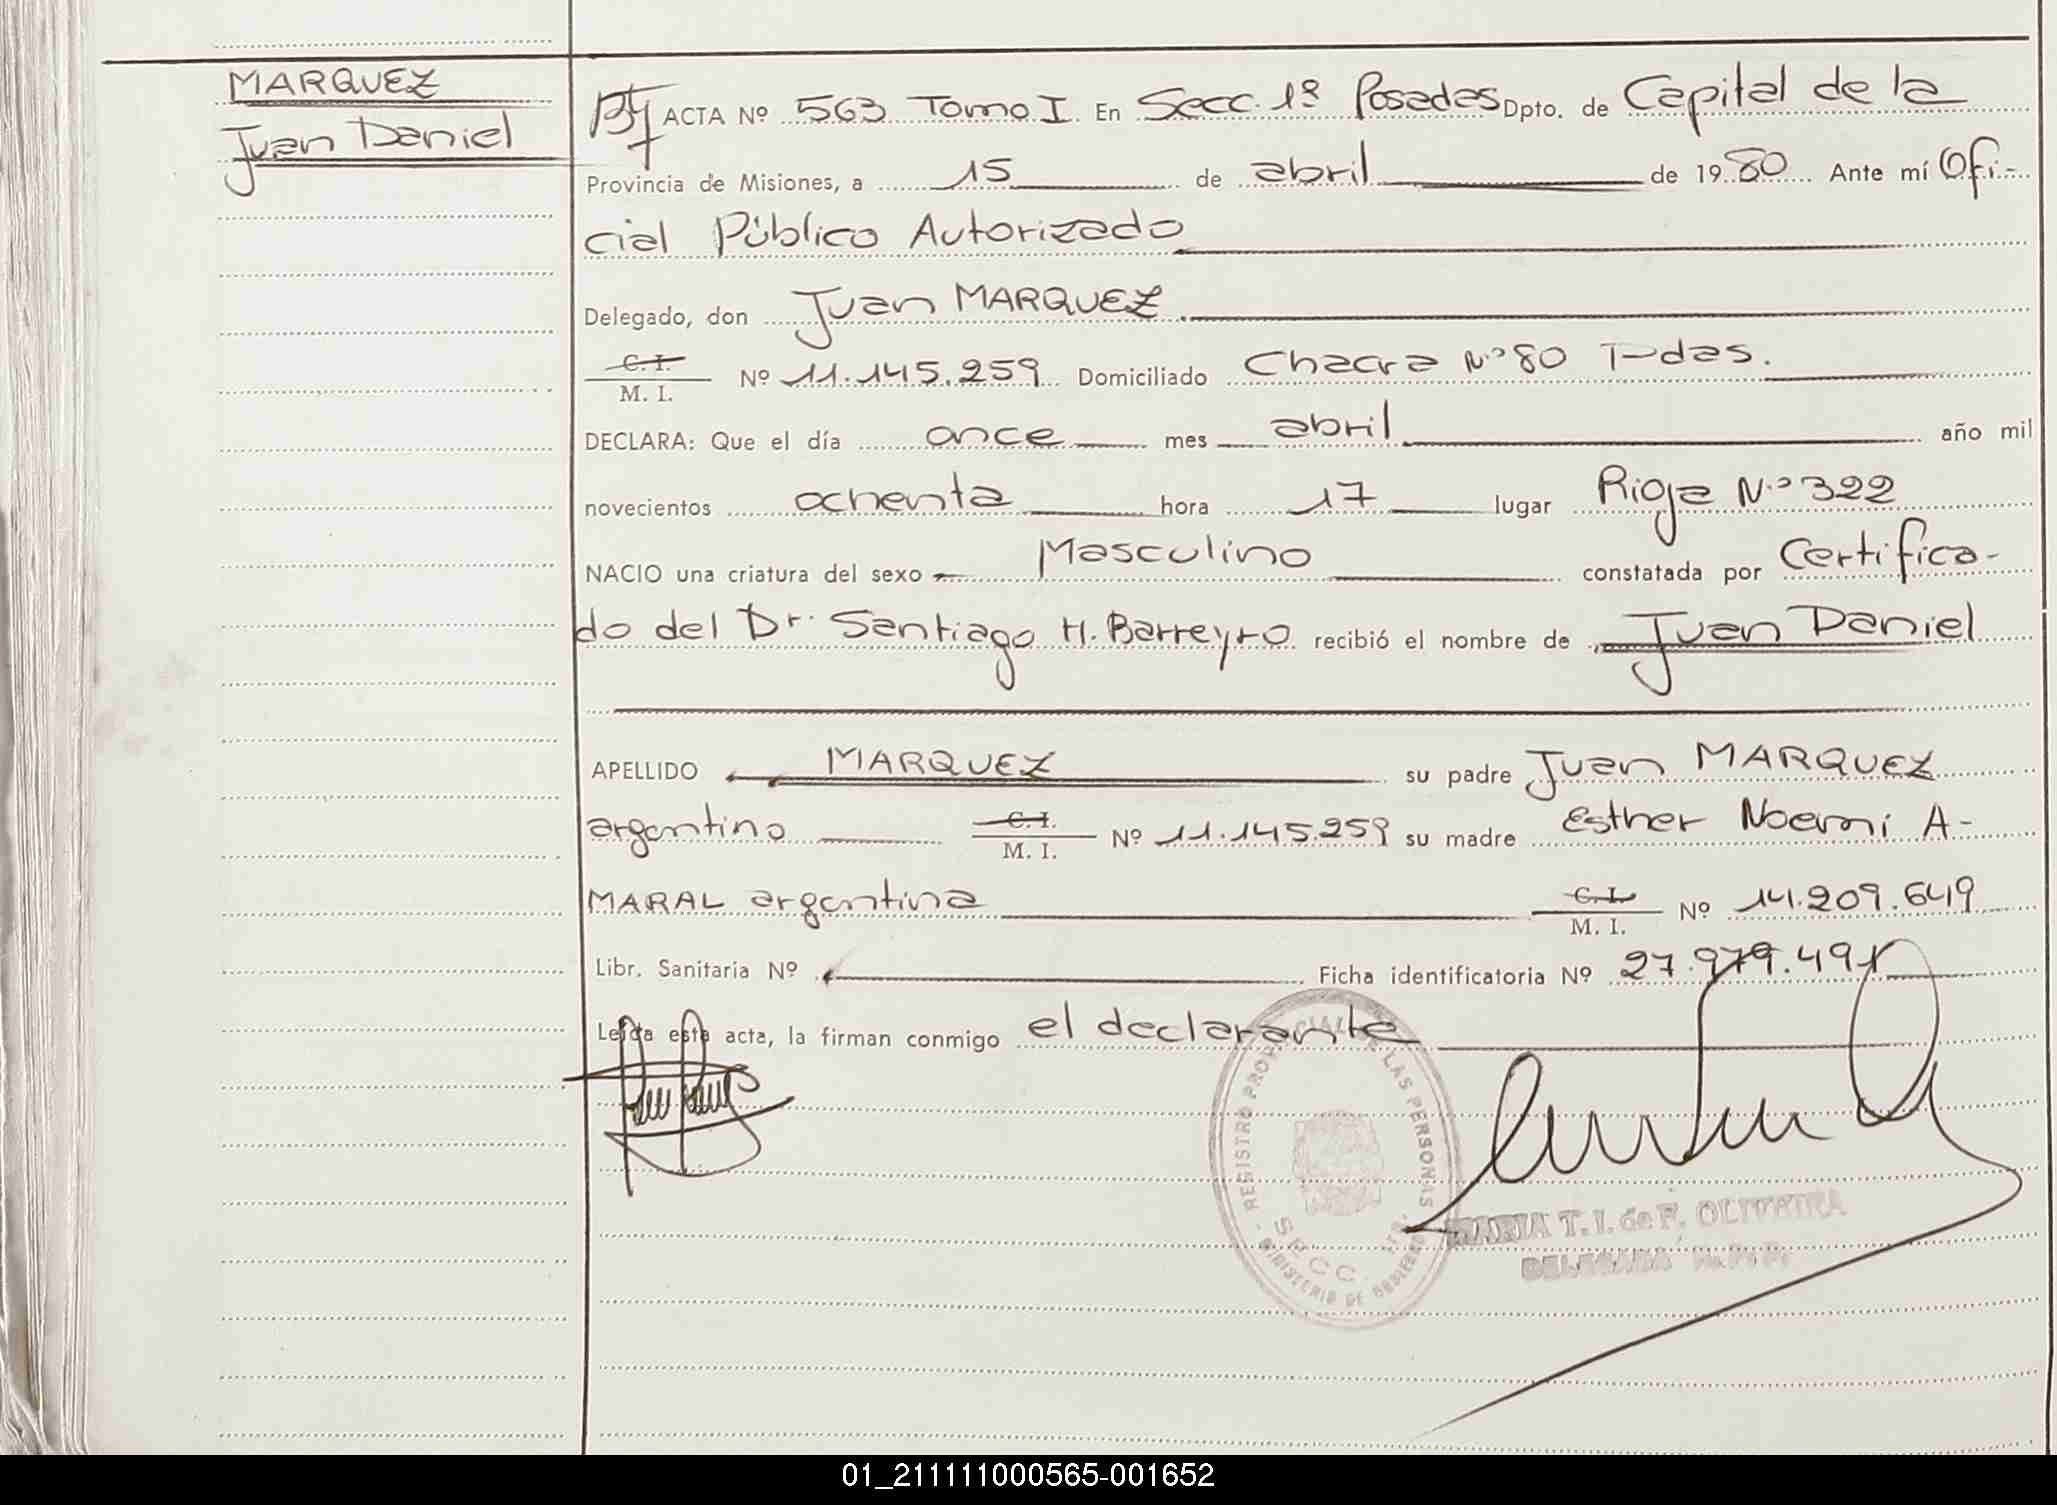 MARQUEZ
Juan Daniel
ACTA Nº 563 Tomo I En Secc. 1º Posadas Dpto. de Capital de la
Provincia de Misiones, a 15 de abril de 1980 Ante mí Ofi-
cial Público Autorizado
Delegado, don Juan MARQUEZ
C. I.
M. I. Nº 11.145.259 Domiciliado Chacra Nº 80 Pdas.
DECLARA: Que el día once mes abril año mil
novecientos ochenta hora 17 lugar Rioja Nº 322
NACIO una criatura del sexo Masculino constatada por Certifica-
do del Dr. Santiago H. Barreyro recibió el nombre de Juan Daniel
APELLIDO MARQUEZ su padre Juan MARQUEZ
argentino C. I. M. I. Nº 11.145.259 su madre Esther Noemi A-
MARAL argentina C. I. M. I. Nº 14.209.649
Libr. Sanitaria Nº Ficha identificatoria Nº 27.979.491
Leída esta acta, la firman conmigo el declarante
REGISTRO PROVINCIAL DE LAS PERSONAS
SECC.
MINISTERIO DE GOBIERNO
MARIA T. I. de F. OLIVEIRA
DELEGADA
01_211111000565-001652